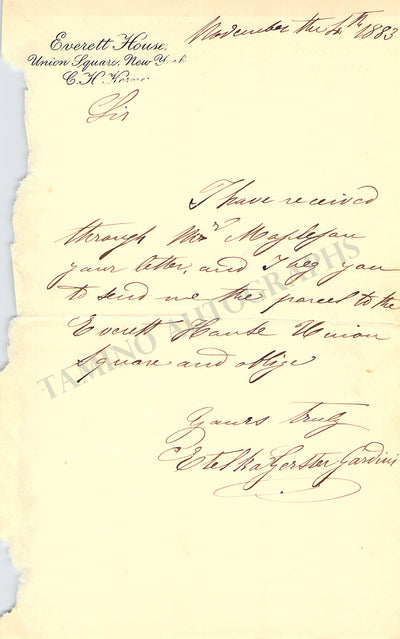 Everett House,
Union Square, New York
C. H. 
November the 4th 1883
Sir
I have received
through Mr Mapleson
your letter, and I beg you
to send me the parcel to the
Everett House Union
Square and oblige
Yours truly
Etelka Gerster Gardini
TAMINO AUTOGRAPHS